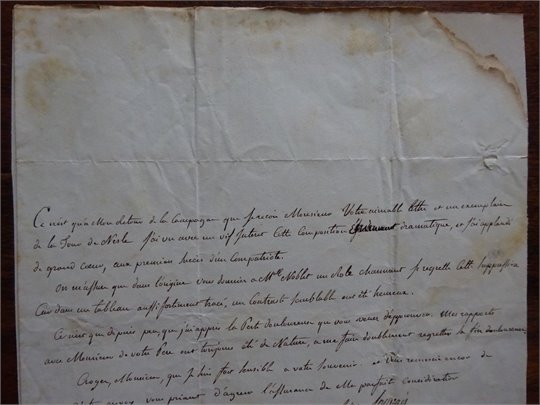 Ce n'est qu'à mon retour de la Campagne que je reçois Monsieur Votre aimable lettre et un exemplaire
de la Tour de Nesle. J'ai vu avec un vif intérêt cette Composition dramatique, et j'ai applaudi
de grand cœur, aux premiers succès d'un Compatriote.
On m'assure que dans l'origine vous donniez à Mlle Noblet un rôle charmant je regrette cette suppression
Car dans un tableau aussi fortement tracé, un Contraste semblable eut été heureux.
Ce n'est que depuis peu que j'appris la Perte douloureuse que vous venez d'approuver. Mes rapports
avec Monsieur de votre Père ont toujours été de Nature, à me faire doublement regretter la fin douloureuse
Croyez, Monsieur, que je suis fort sensible à votre Souvenir et vous remerciant encor de
votre envoy vous priant d'agréer l'assurance de Ma parfaite Considération